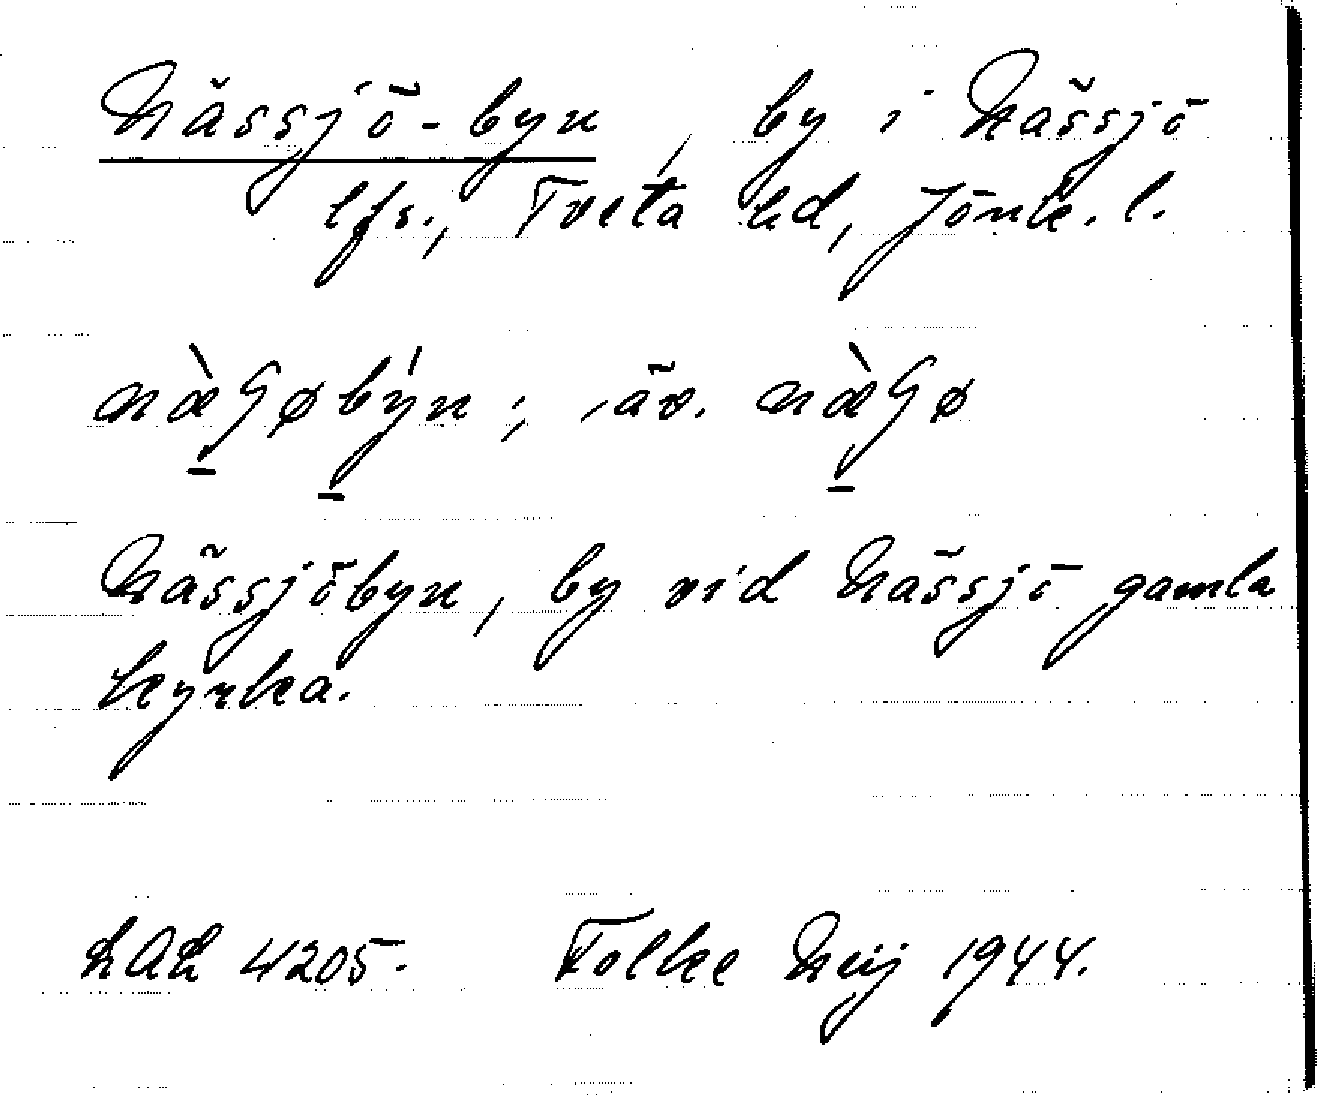 Nässjö-byn, by i Nässjö
lfs., Tveta hd, Jönk. l.
näʃøbýn; äv. näʃø
Nässjöbyn, by vid Nässjö gamla
kyrka.
4205. Folke 1944.